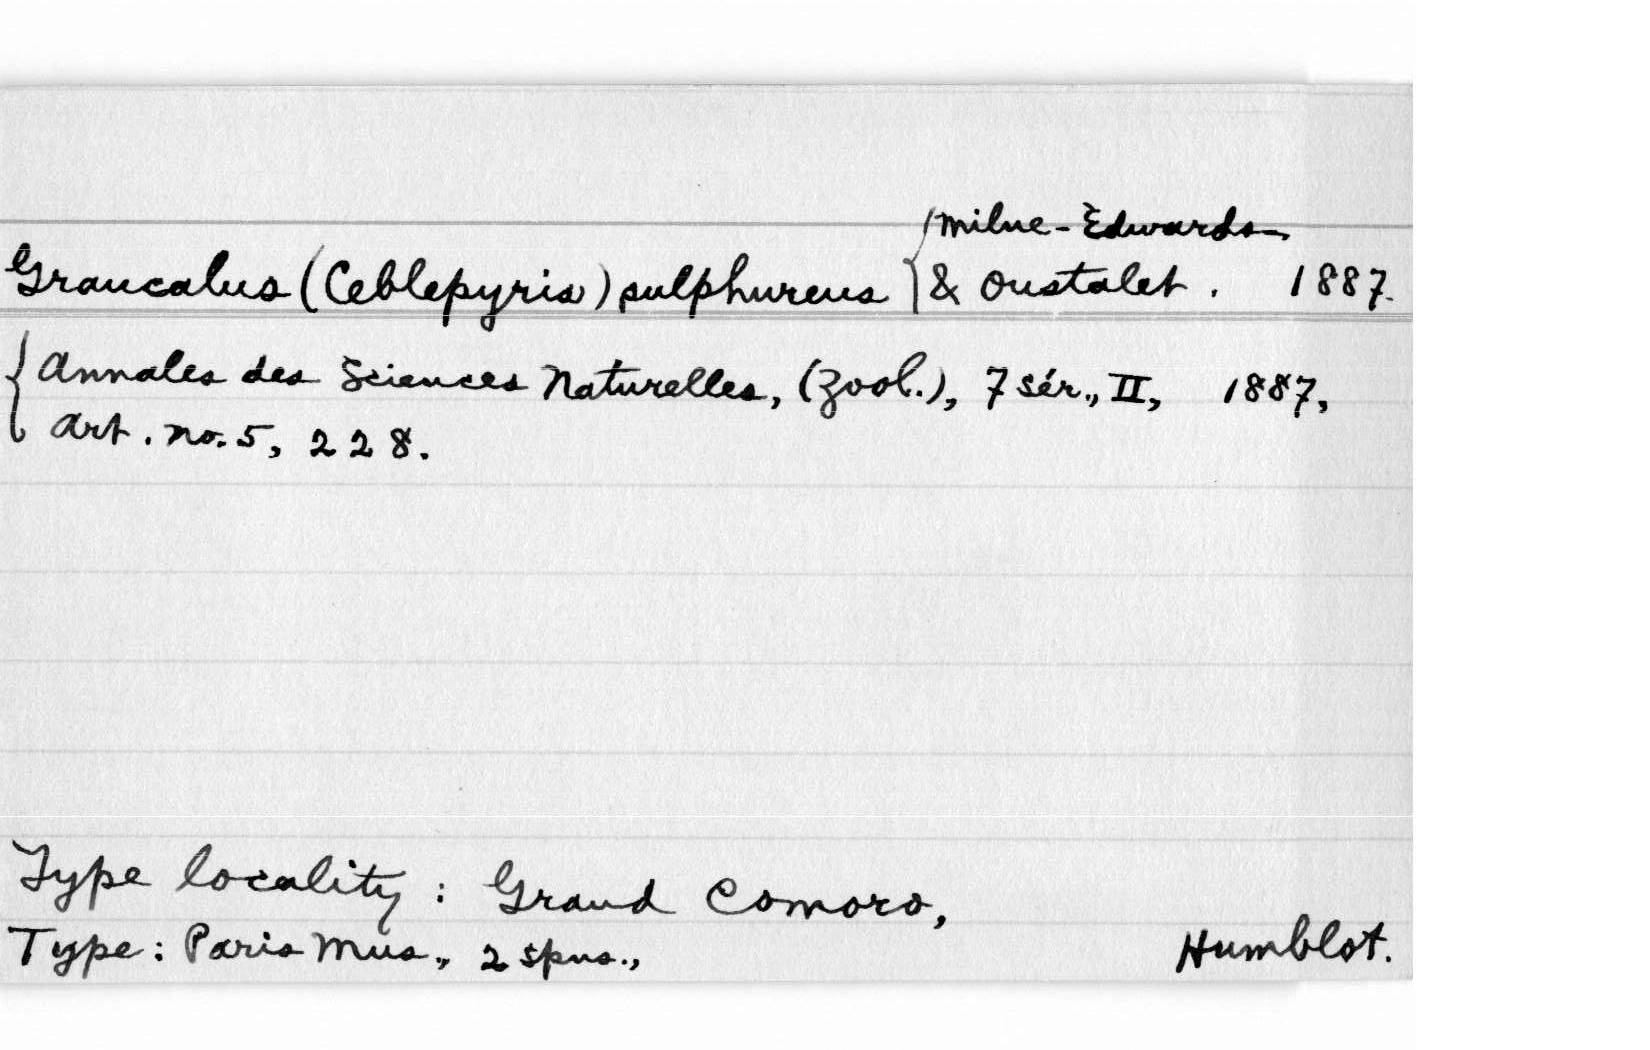 Graucalus (Ceblepyris) sulphureus { Milne-Edwards
& Oustalet. 1887.
{ Annales des Sciences Naturelles, (Zool.), 7 sér., II, 1887,
Art. no. 5, 228.
Type locality: Grand Comoro,
Type: Paris Mus., 2 spns., Humblot.